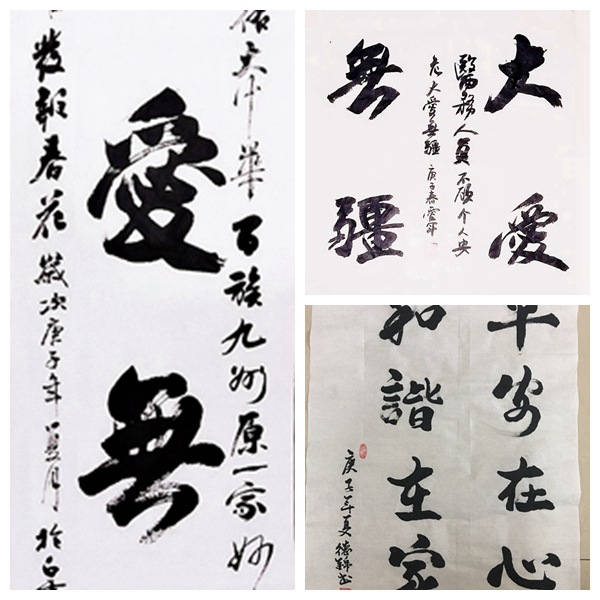 佑大中華百族九州原一家妙
愛無
發報春花歲次庚子年夏月於白雲
大愛
醫務人員不顧個人安
危大愛無疆庚子春
無疆
平安在心
和諧在家
庚子年夏德